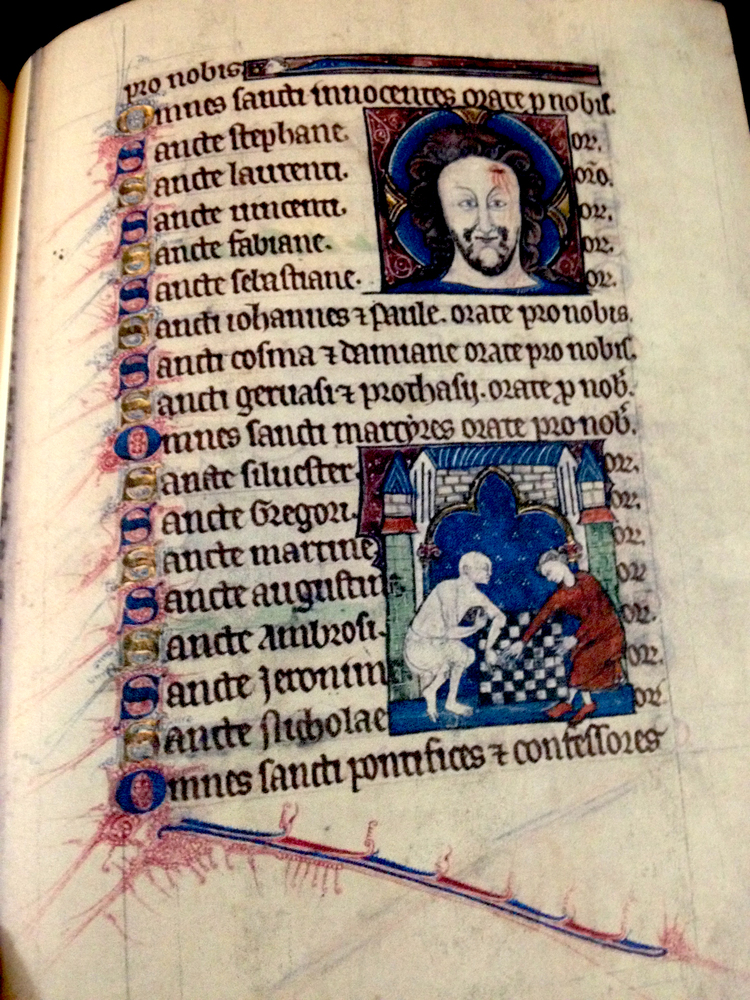 pro nobis
Omnes sancti innocentes orate p nobis.
Sancte stephane. or.
Sancte laurenti. oro.
Sancte uincenti. or.
Sancte fabiane. or.
Sancte sebastiane. or.
Sancti iohannes ⁊ paule. orate pro nobis.
Sancti cosma ⁊ damiane orate pro nobis.
Sancti geruasi ⁊ prothasij. orate p nob.
Omnes sancti martyres orate pro nob.
Sancte siluester or.
Sancte Gregori. or.
Sancte martine or.
Sancte augustin or
Sancte Ambrosi. or.
Sancte Jeronim or.
Sancte Nicholae or
Omnes sancti pontifices ⁊ confessores